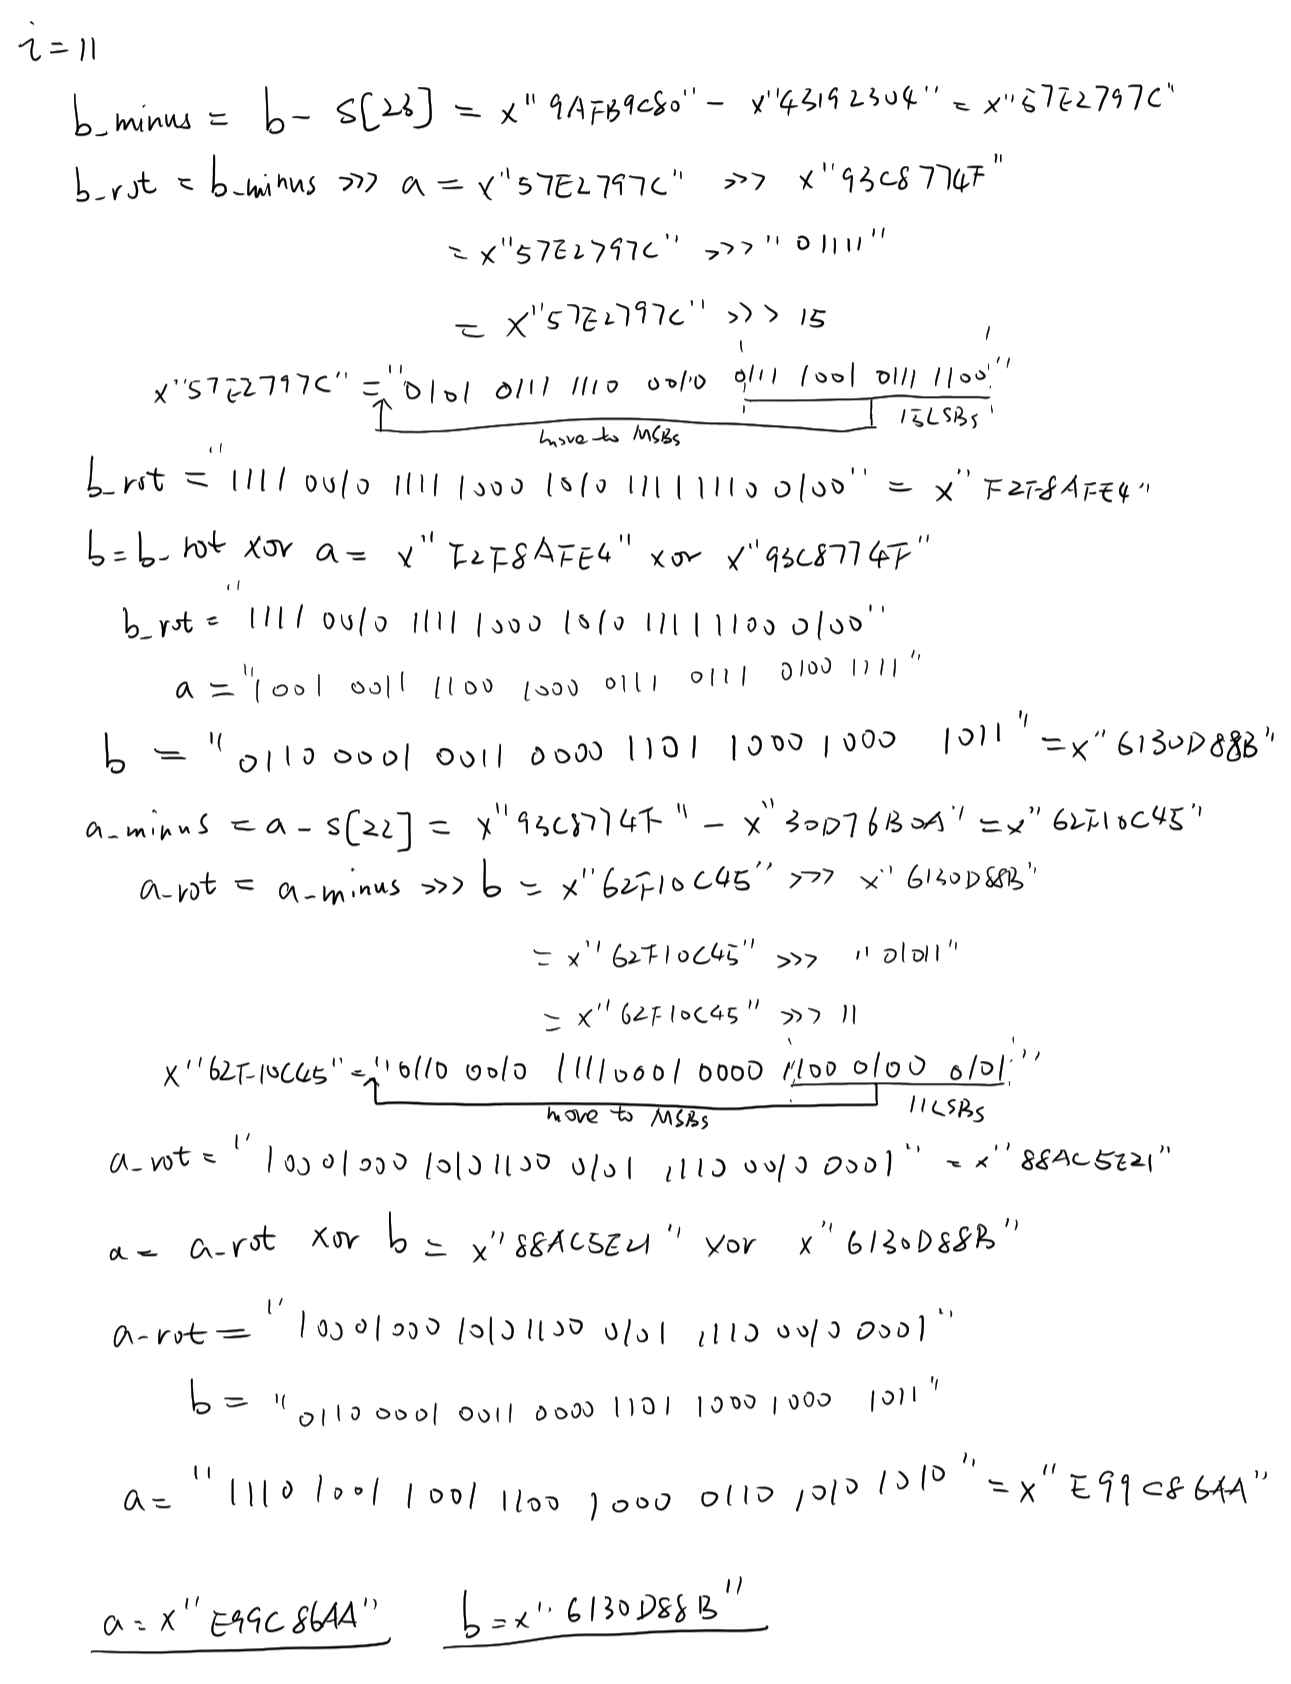 i=11
b_minus = b - S[23] = x"9AFB9C80" - x"43192304" = x"57E2797C"
b_rot = b_minus >>> a = x"57E2797C" >>> x"93C8774F"
= x"57E2797C" >>> "01111"
= x"57E2797C" >>> 15
x"57E2797C" = "0101 0111 1110 0010 0111 1001 0111 1100"
15LSBs
move to MSBs
b_rot = "1111 0010 1111 1000 1010 1111 1110 0100" = x"F2F8AFE4"
b = b_rot xor a = x"F2F8AFE4" xor x"93C8774F"
b_rot = "1111 0010 1111 1000 1010 1111 1100 0100"
a = "1001 0011 1100 1000 0111 0111 0100 1111"
b = "0110 0001 0011 0000 1101 1000 1000 1011" = x"6130D88B"
a_minus = a - S[22] = x"93C8774F" - x"30D76B0A" = x"62F10C45"
a_rot = a_minus >>> b = x"62F10C45" >>> x"6130D88B"
= x"62F10C45" >>> "01011"
= x"62F10C45" >>> 11
x"62F10C45" = "0110 0010 1111 0001 0000 1100 0100 0101"
11LSBs
move to MSBs
a_rot = "1000 1000 1010 1100 0101 1110 0010 0001" = x"88AC5E21"
a = a_rot xor b = x"88AC5E21" xor x"6130D88B"
a_rot = "1000 1000 1010 1100 0101 1110 0010 0001"
b = "0110 0001 0011 0000 1101 1000 1000 1011"
a = "1110 1001 1001 1100 1000 0110 1010 1010" = x"E99C86AA"
a = x"E99C86AA" b = x"6130D88B"